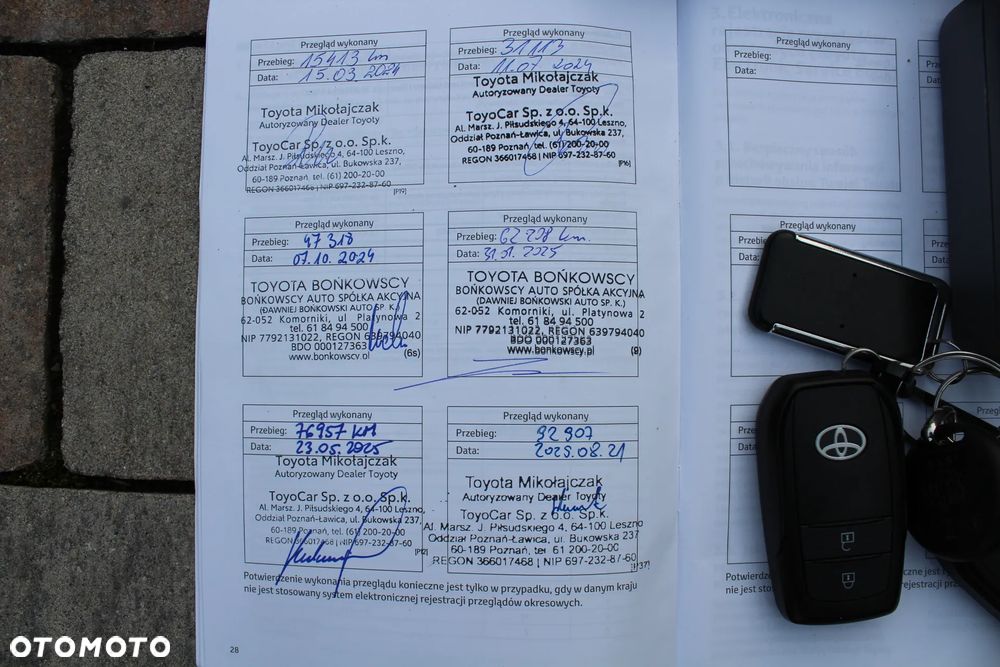 Przegląd wykonany
Przebieg: 15413 km
Data: 15.03 2024
Toyota Mikołajczak
Autoryzowany Dealer Toyoty
ToyoCar Sp. z o.o. Sp.k.
Al. Marsz. J. Piłsudskiego 4, 64-100 Leszno,
Oddział Poznań-Ławica, ul. Bukowska 237,
60-189 Poznań, tel. (61) 200-20-00
REGON 366017468 | NIP 697-232-87-60
[P19]
Przegląd wykonany
Przebieg: 31113
Data: 11.07 2024
Toyota Mikołajczak
Autoryzowany Dealer Toyoty
ToyoCar Sp. z o.o. Sp.k.
Al. Marsz. J. Piłsudskiego 4, 64-100 Leszno,
Oddział Poznań-Ławica, ul. Bukowska 237,
60-189 Poznań, tel. (61) 200-20-00
REGON 366017468 | NIP 697-232-87-60
[P16]
Przegląd wykonany
Przebieg: 47 318
Data: 07.10. 2024
TOYOTA BOŃKOWSCY
BOŃKOWSCY AUTO SPÓŁKA AKCYJNA
(DAWNIEJ BOŃKOWSKI AUTO SP. K.)
62-052 Komorniki, ul Platynowa 2
tel. 61 84 94 500
NIP 7792131022, REGON 639794040
BDO 000127363
www.bonkowscy.pl (6s)
Przegląd wykonany
Przebieg: 62 298 km.
Data: 31.01.2025
TOYOTA BOŃKOWSCY
BOŃKOWSCY AUTO SPÓŁKA AKCYJNA
(DAWNIEJ BOŃKOWSKI AUTO SP. K.)
62-052 Komorniki, ul. Platynowa 2
tel. 61 84 94 500
NIP 7792131022, REGON 639794040
BDO 000127363
www.bonkowscy.pl (9)
Przegląd wykonany
Przebieg: 76957 KM
Data: 23.05.2025
Toyota Mikołajczak
Autoryzowany Dealer Toyoty
ToyoCar Sp. z o.o. Sp.k.
Al. Marsz. J. Piłsudskiego 4, 64-100 Leszno,
Oddział Poznań-Ławica, ul. Bukowska 237,
60-189 Poznań, tel. (61) 200-20-00
REGON 366017468 | NIP 697-232-87-60
[P12]
Przegląd wykonany
Przebieg: 92 907
Data: 2025.08.21
Toyota Mikołajczak
Autoryzowany Dealer Toyoty
ToyoCar Sp. z o.o. Sp.k.
Al. Marsz. J. Piłsudskiego 4, 64-100 Leszno
Oddział Poznań-Ławica, ul. Bukowska 237
60-189 Poznań, tel 61 200-20-00
REGON 366017468 | NIP 697-232-87-60
[P37]
Potwierdzenie wykonania przeglądu konieczne jest tylko w przypadku, gdy w danym kraju
nie jest stosowany system elektronicznej rejestracji przeglądów okresowych.
28
Przegląd wykonany
Przebieg:
Data:
Przegląd wykonany
Przebieg:
Data:
Przebieg:
Data:
TOYOTA
OTOMOTO